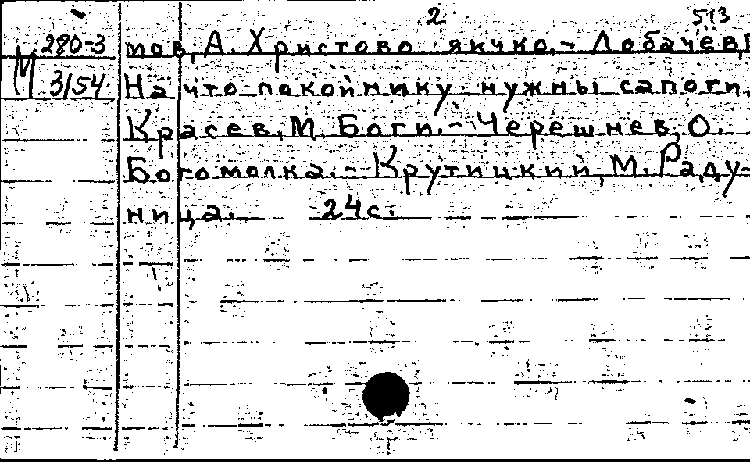 2. 513
М 280-3 мов, А. Христово яичко.- Лобачев,
3/54 На что покойнику нужны сапоги.
Красев, М. Боги.- Черешнев, О.
Богомолка.- Крутицкий, М. Раду-
ница. 24с.